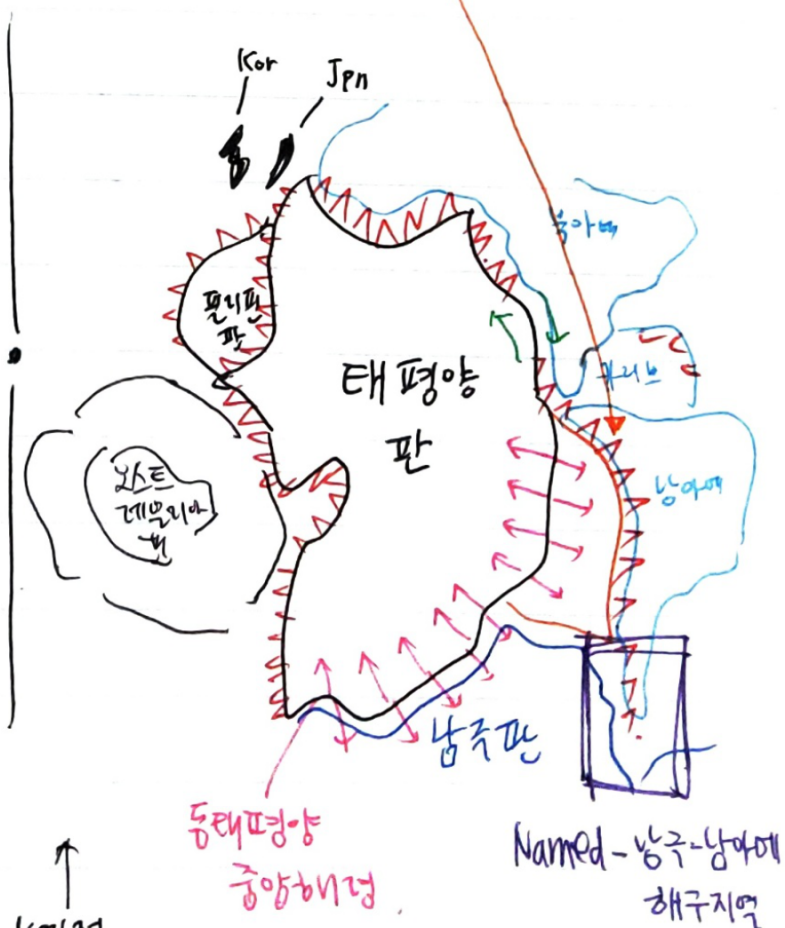 Kor
Jpn
북아메
필리핀
판
카리브
태평양
판
남아메
오스트
레일리아
판
남극판
동태평양
중앙해령
Named-남극-남아메
해구지역